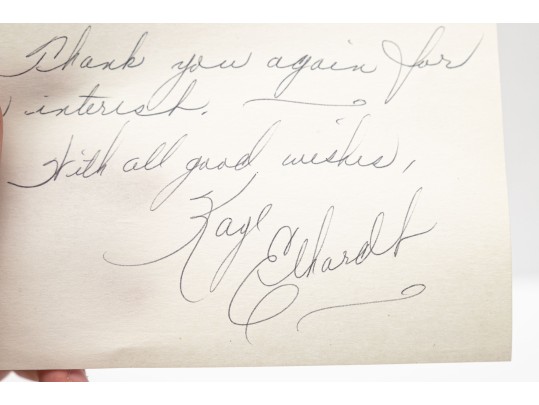 Thank you again for
interest.
With all good wishes,
Kaye
Elhardt